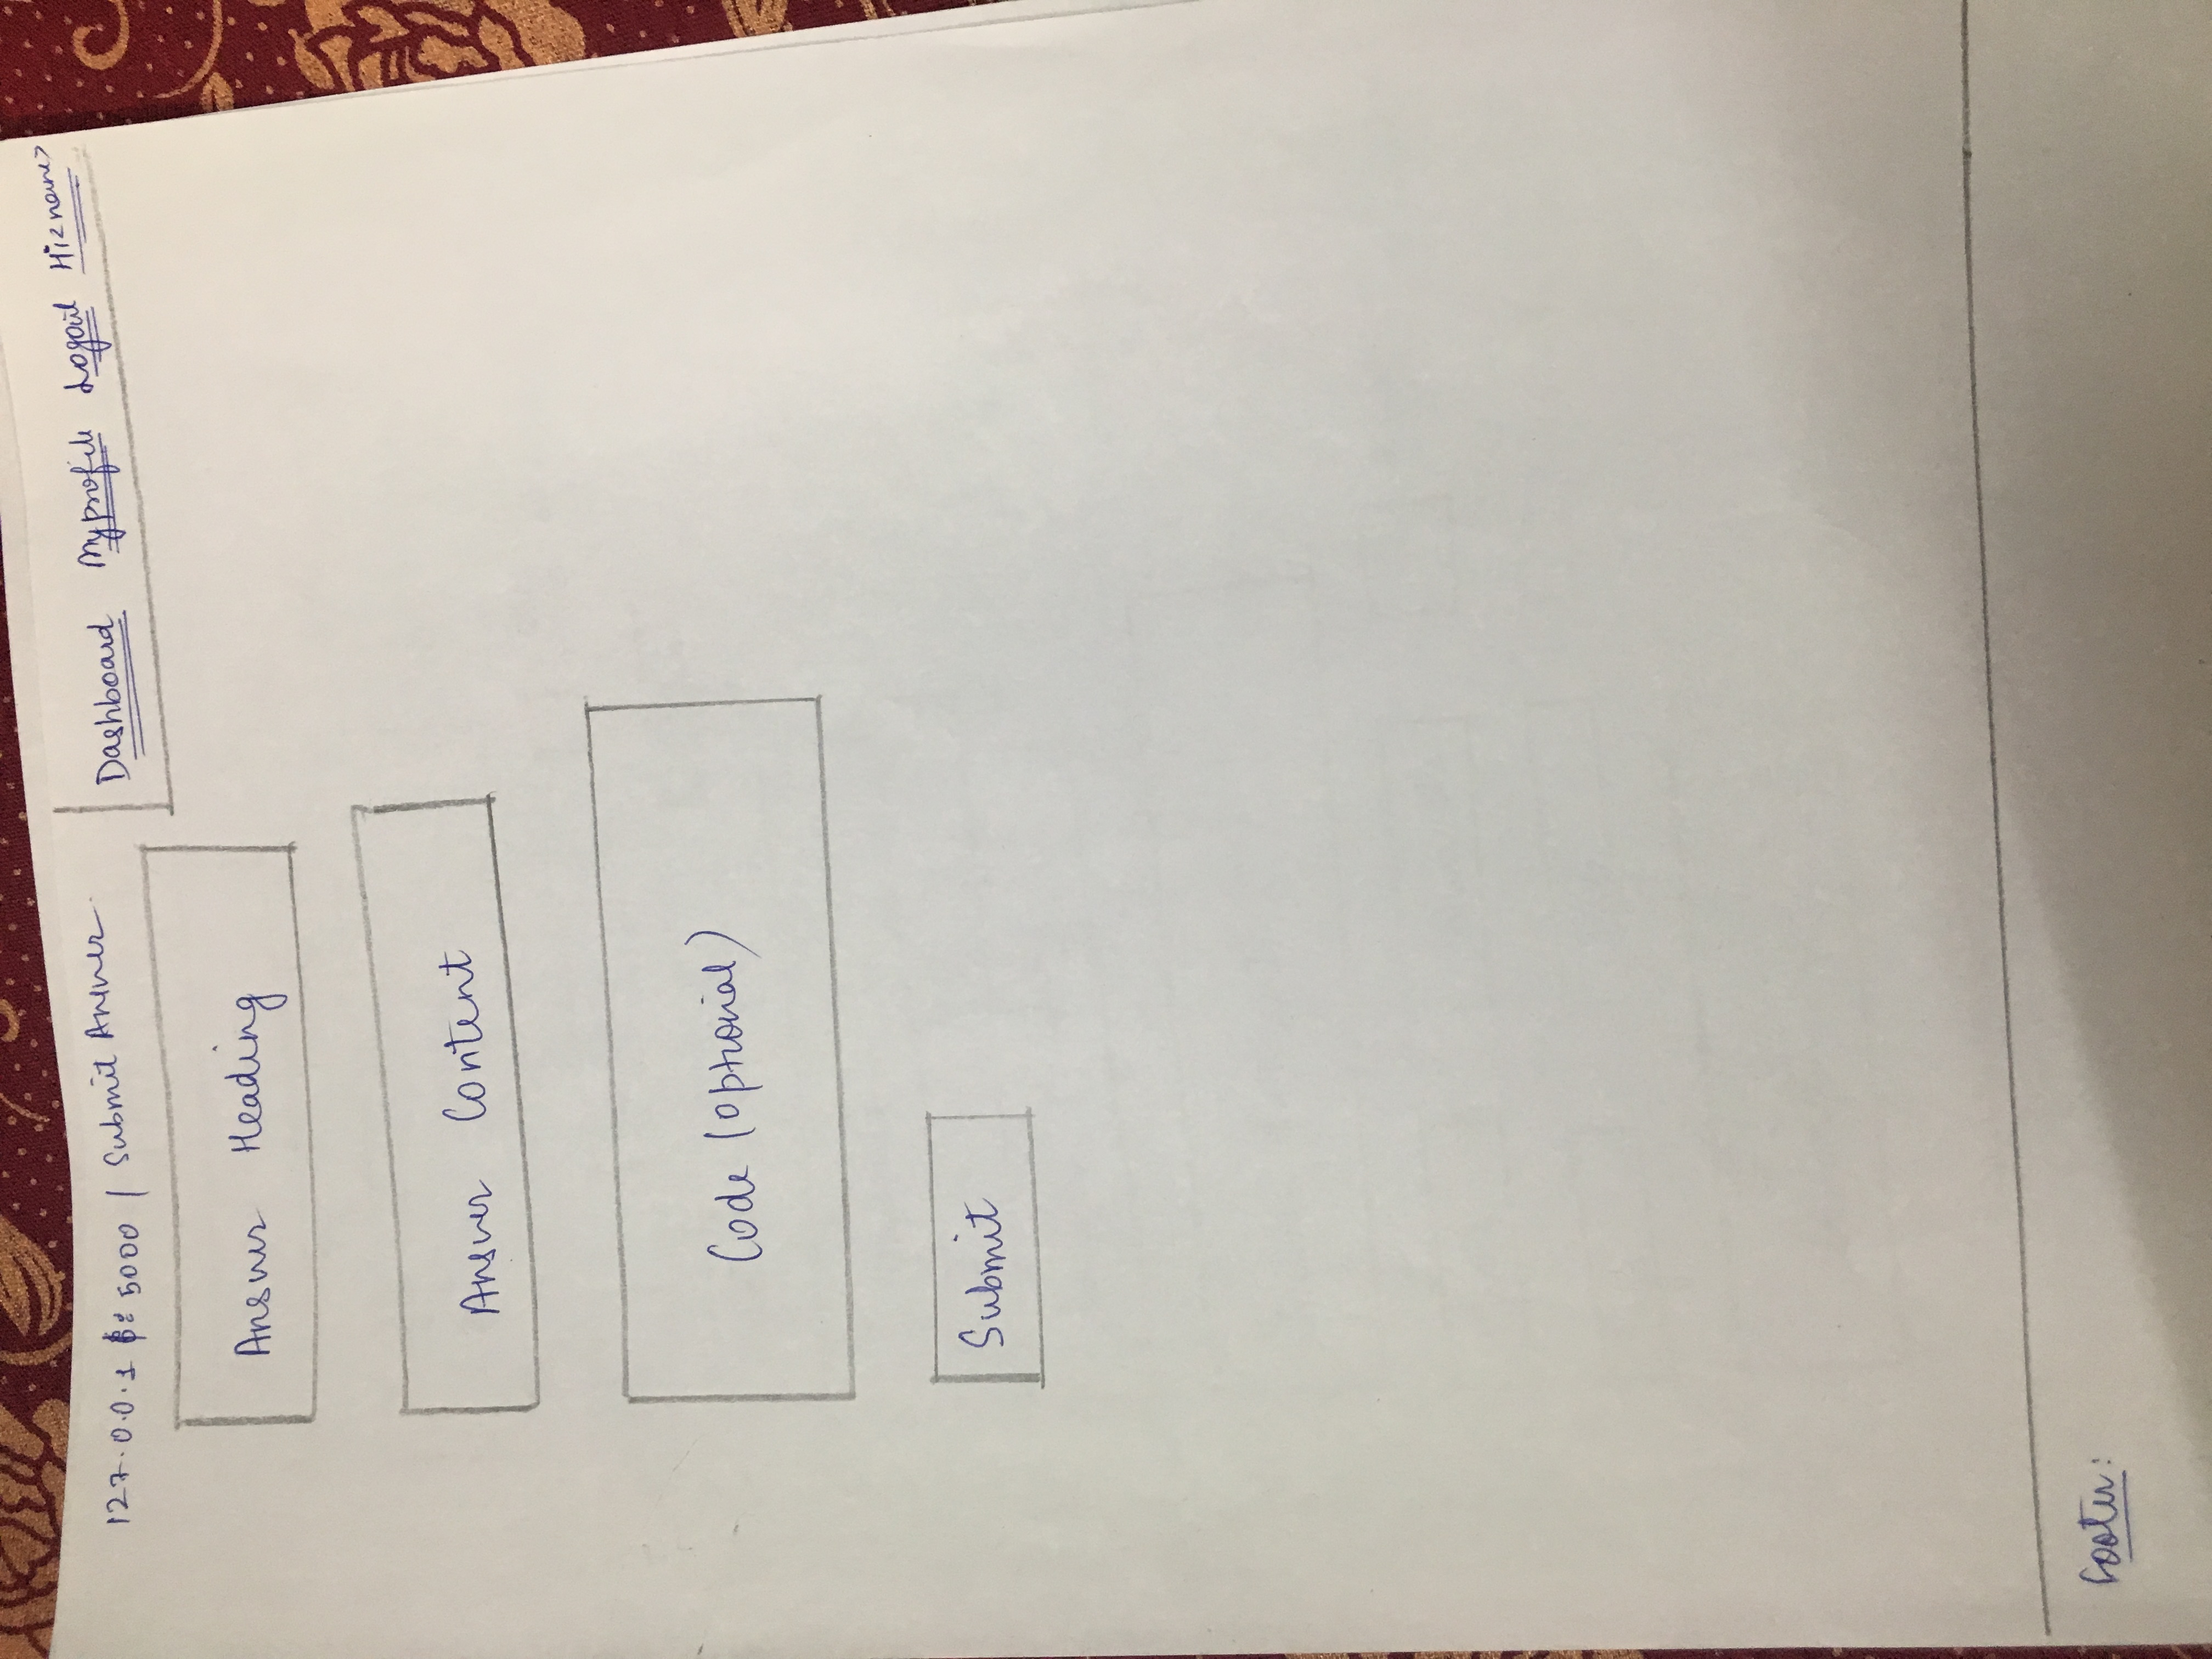 127.0.0.1 : 5000 / Submit Answer
Dashboard Myprofile Logout Hi<name>
Answer Heading
Answer Content
Code (optional)
Submit
Footer: